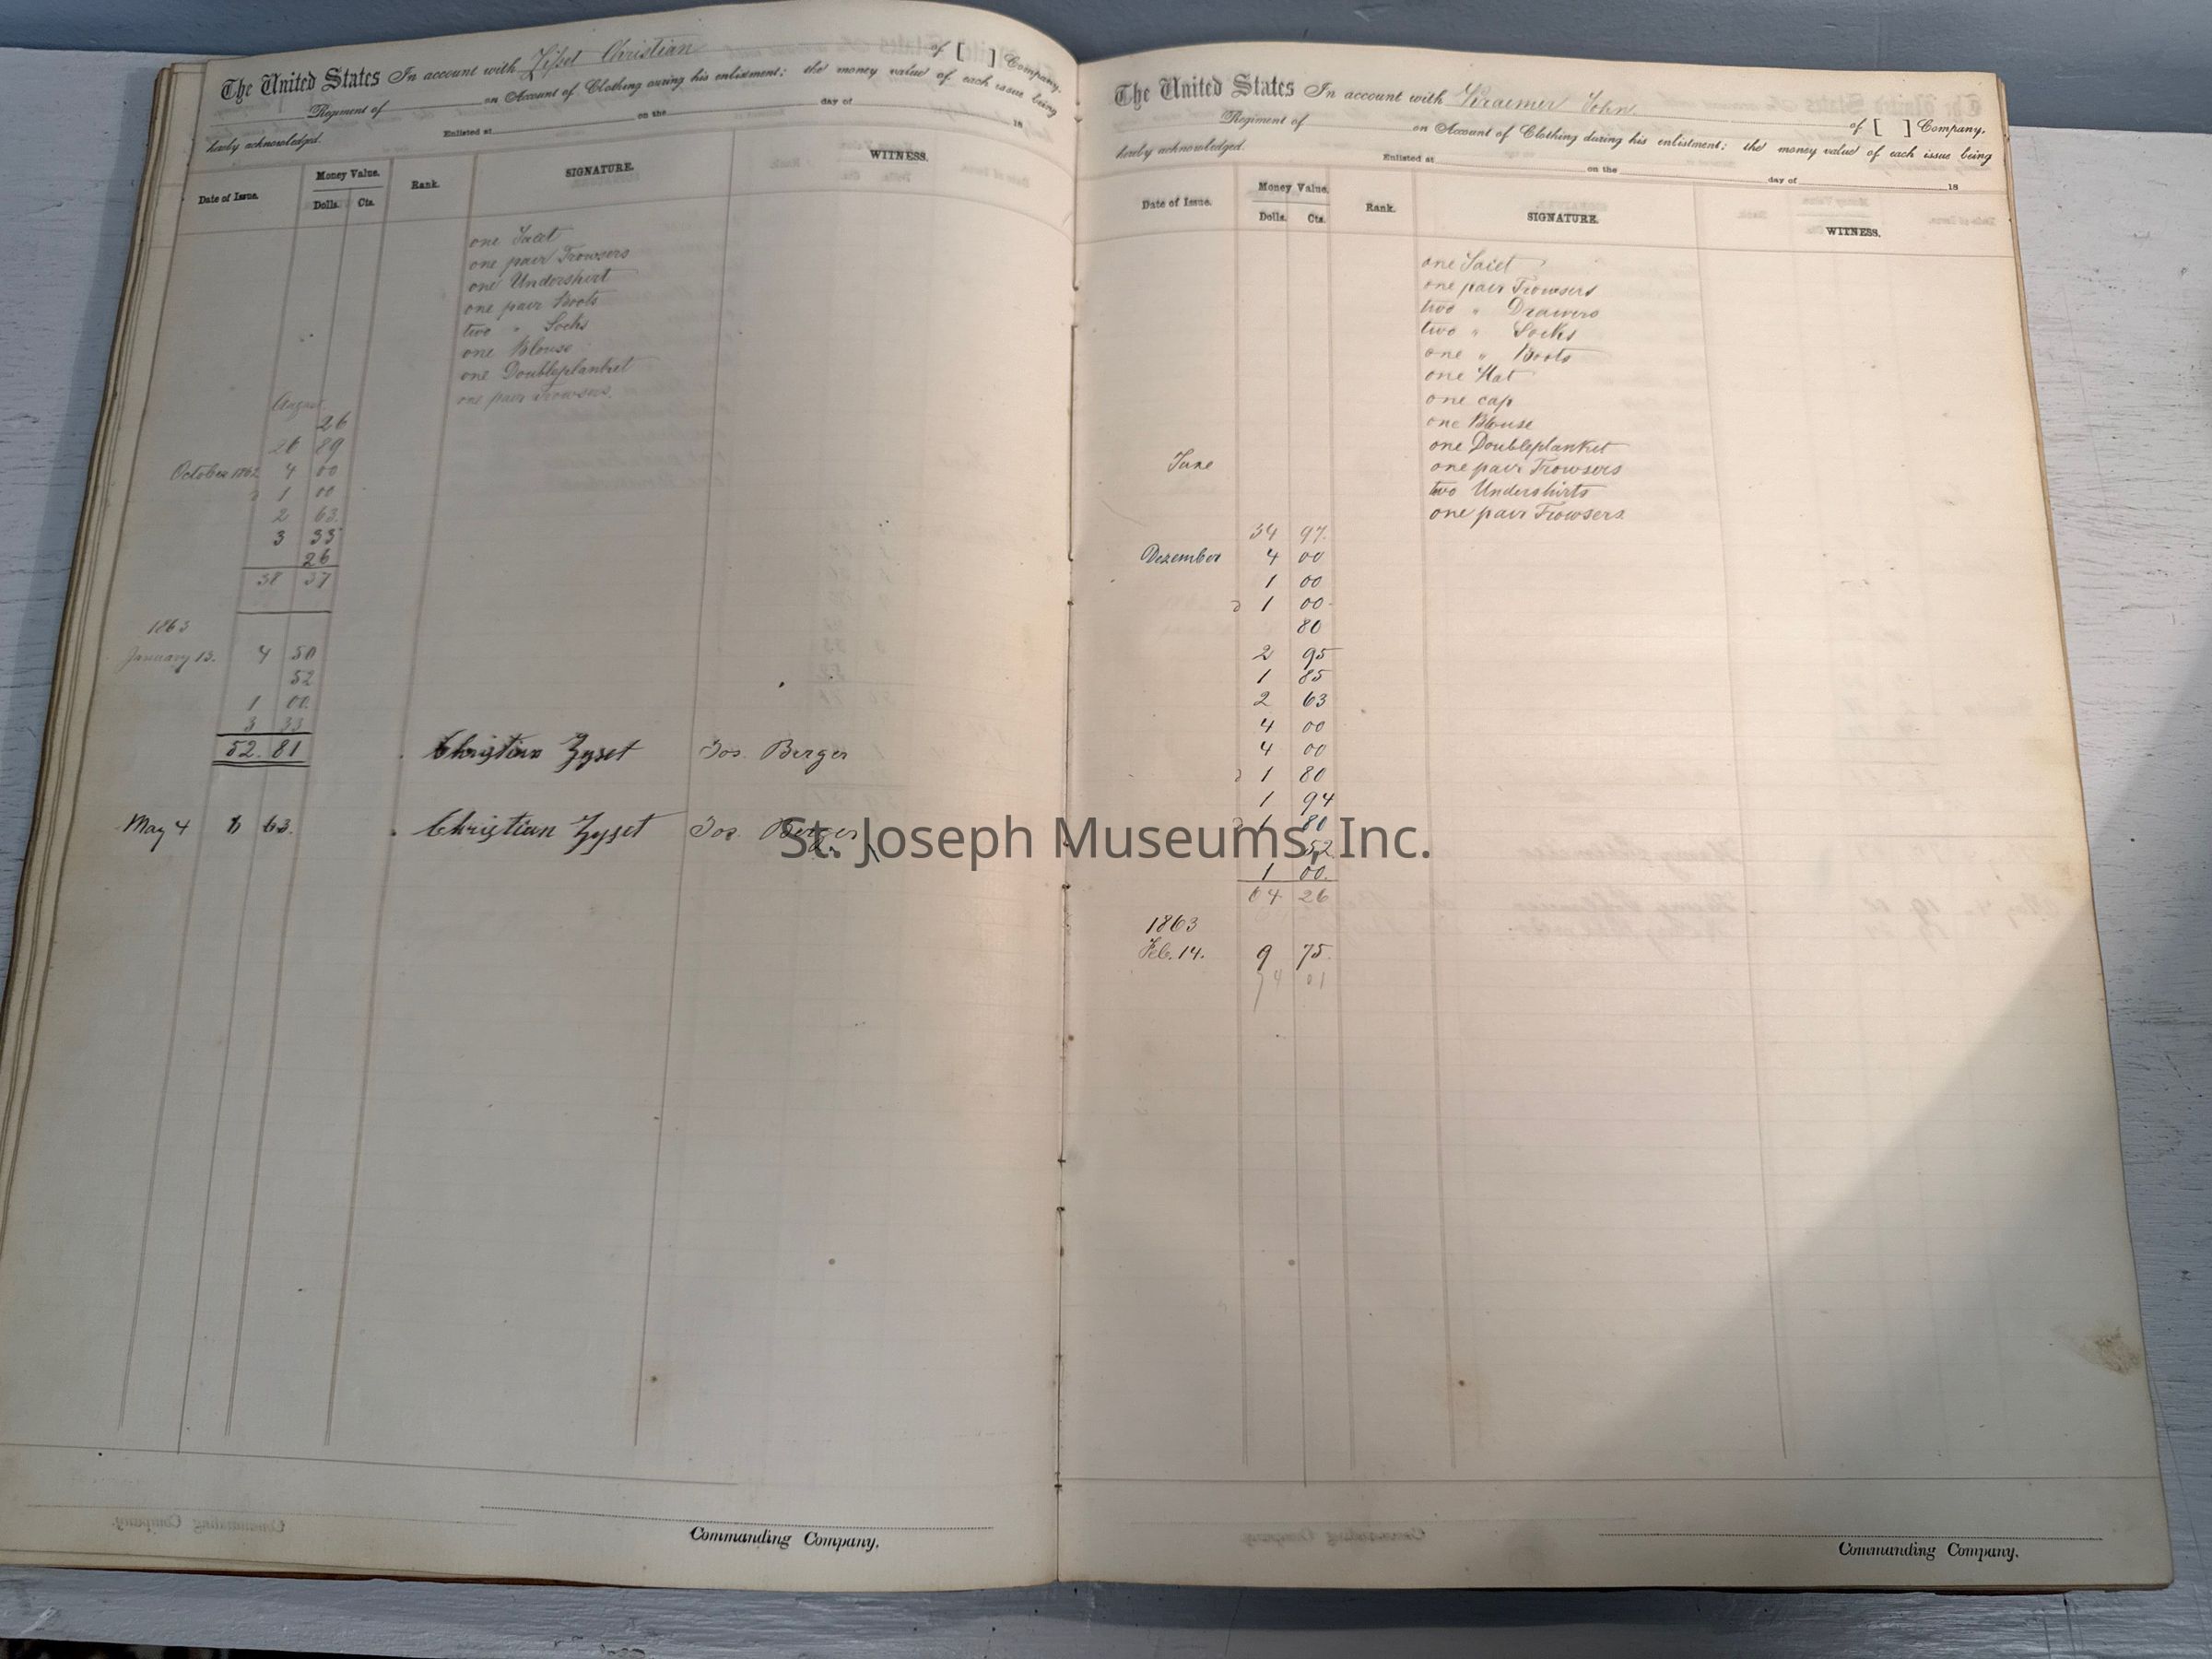 The United States In account with Zysset Christian of [ ] Company,
Regiment of on Account of Clothing during his enlistment; the money value of each issue being
hereby acknowledged. Enlisted at on the day of 18
Date of Issue. Money Value. Rank. SIGNATURE. WITNESS.
Dolls. Cts.
one Jacet
one pair Trowsers
one Undershirt
one pair Boots
two " Socks
one Blouse
one Doubleplanket
one pair Trowsers.
August
26
26 89
October 1862 4 00
2 1 00
2 63.
3 33
26
38 37
1863
January 13. 4 50
52
1 00.
3 33
52. 81 Christian Zyset Jos. Berger
May 4 8 63. Christian Zyset Jos. Berger
Commanding Company.
The United States In account with Kraemer John. of [ ] Company,
Regiment of on Account of Clothing during his enlistment; the money value of each issue being
hereby acknowledged. Enlisted at on the day of 18
Date of Issue. Money Value. Rank. SIGNATURE. WITNESS.
Dolls. Cts.
one Jacet
one pair Trowsers
two " Drawers
two " Socks
one " Boots
one Hat
one cap
one Blouse
one Doubleplanket
June one pair Trowsers
two Undershirts
one pair Trowsers.
34 97.
Dezember 4 00
1 00
2 1 00
80
2 95
1 85
2 63
4 00
4 00
2 1 80
1 94
2 1 80
52
1 00.
64 26
1863
Feb. 14. 9 75.
74 01
Commanding Company.
St. Joseph Museums, Inc.